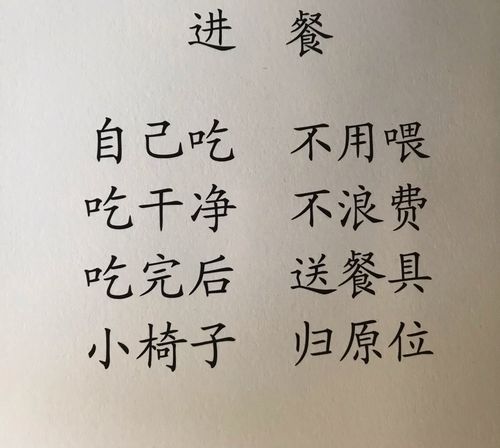 进 餐
自己吃 不用喂
吃干净 不浪费
吃完后 送餐具
小椅子 归原位